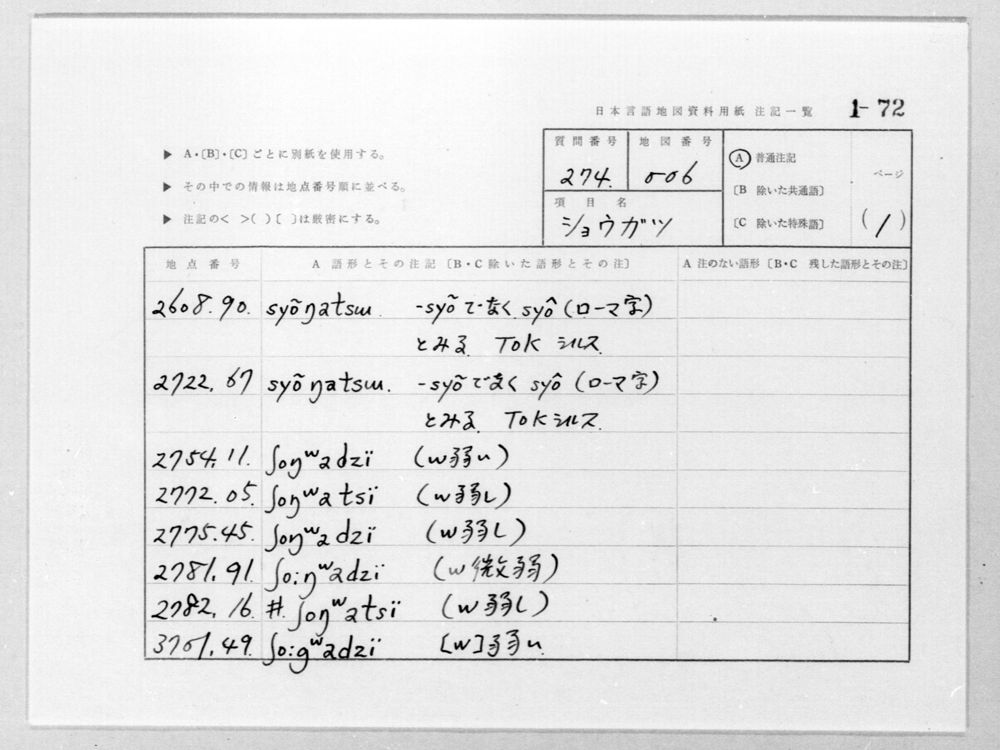 日本言語地図資料用紙 注記一覧 1-72
▶ A・〔B〕・〔C〕ごとに別紙を使用する。
▶ その中での情報は地点番号順に並べる。
▶ 注記の< >( )〔 〕は厳密にする。
質問番号 地図番号
274. 006
項目名
ショウガツ
Ⓐ 普通注記
〔B 除いた共通語〕
〔C 除いた特殊語〕
ページ
(1)
地点番号 A 語形とその注記〔B・C 除いた語形とその注〕 A 注のない語形〔B・C 残した語形とその注〕
2608.90. syõŋatsɯ -syõでなく syô (ローマ字)
とみる TOK シルス.
2722.67 syõŋatsɯ. -syõでなく syô (ローマ字)
とみる TOK シルス.
2754.11. ʃoŋʷadzï (w弱い)
2772.05. ʃoŋʷatsï (w弱し)
2775.45. ʃoŋʷadzï (w弱し)
2781.91. ʃo:ŋʷadzï (w微弱)
2782.16. #.ʃoŋʷatsï (w弱し)
3701.49. ʃo:gʷadzï [w]弱い